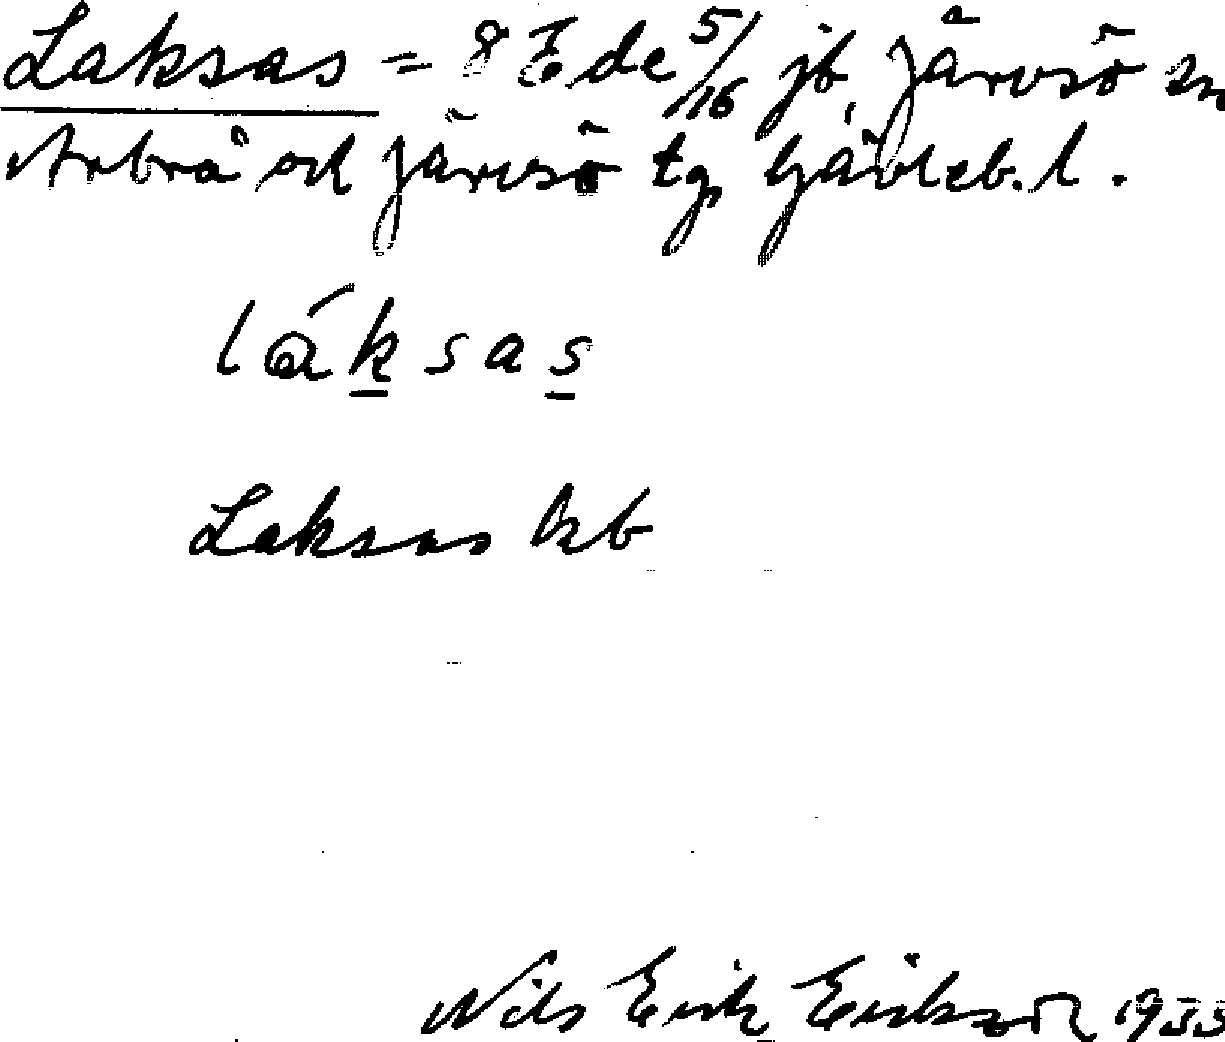 Laksas = 8 Ede 5/16 jb, Järvsö sn
Arbrå och Järvsö tg Gävleb. l.
láksas
Laksas kb
Nils Erik Erikson 1933